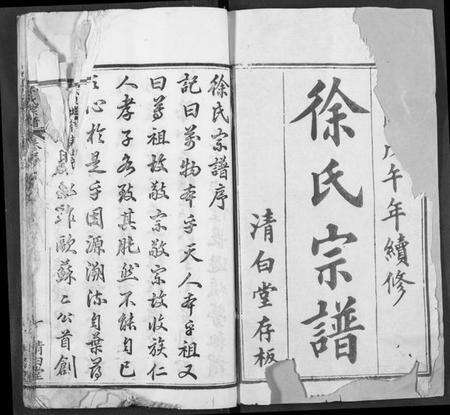 午年續修
徐氏宗譜
清白堂存板
徐氏宗譜序
記曰萬物本乎天人本乎祖又
曰尊祖故敬宗敬宗故收族仁
人孝子各致其肫然不能自已
之心於是乎因源溯流自葉尋
歐蘇二公首創